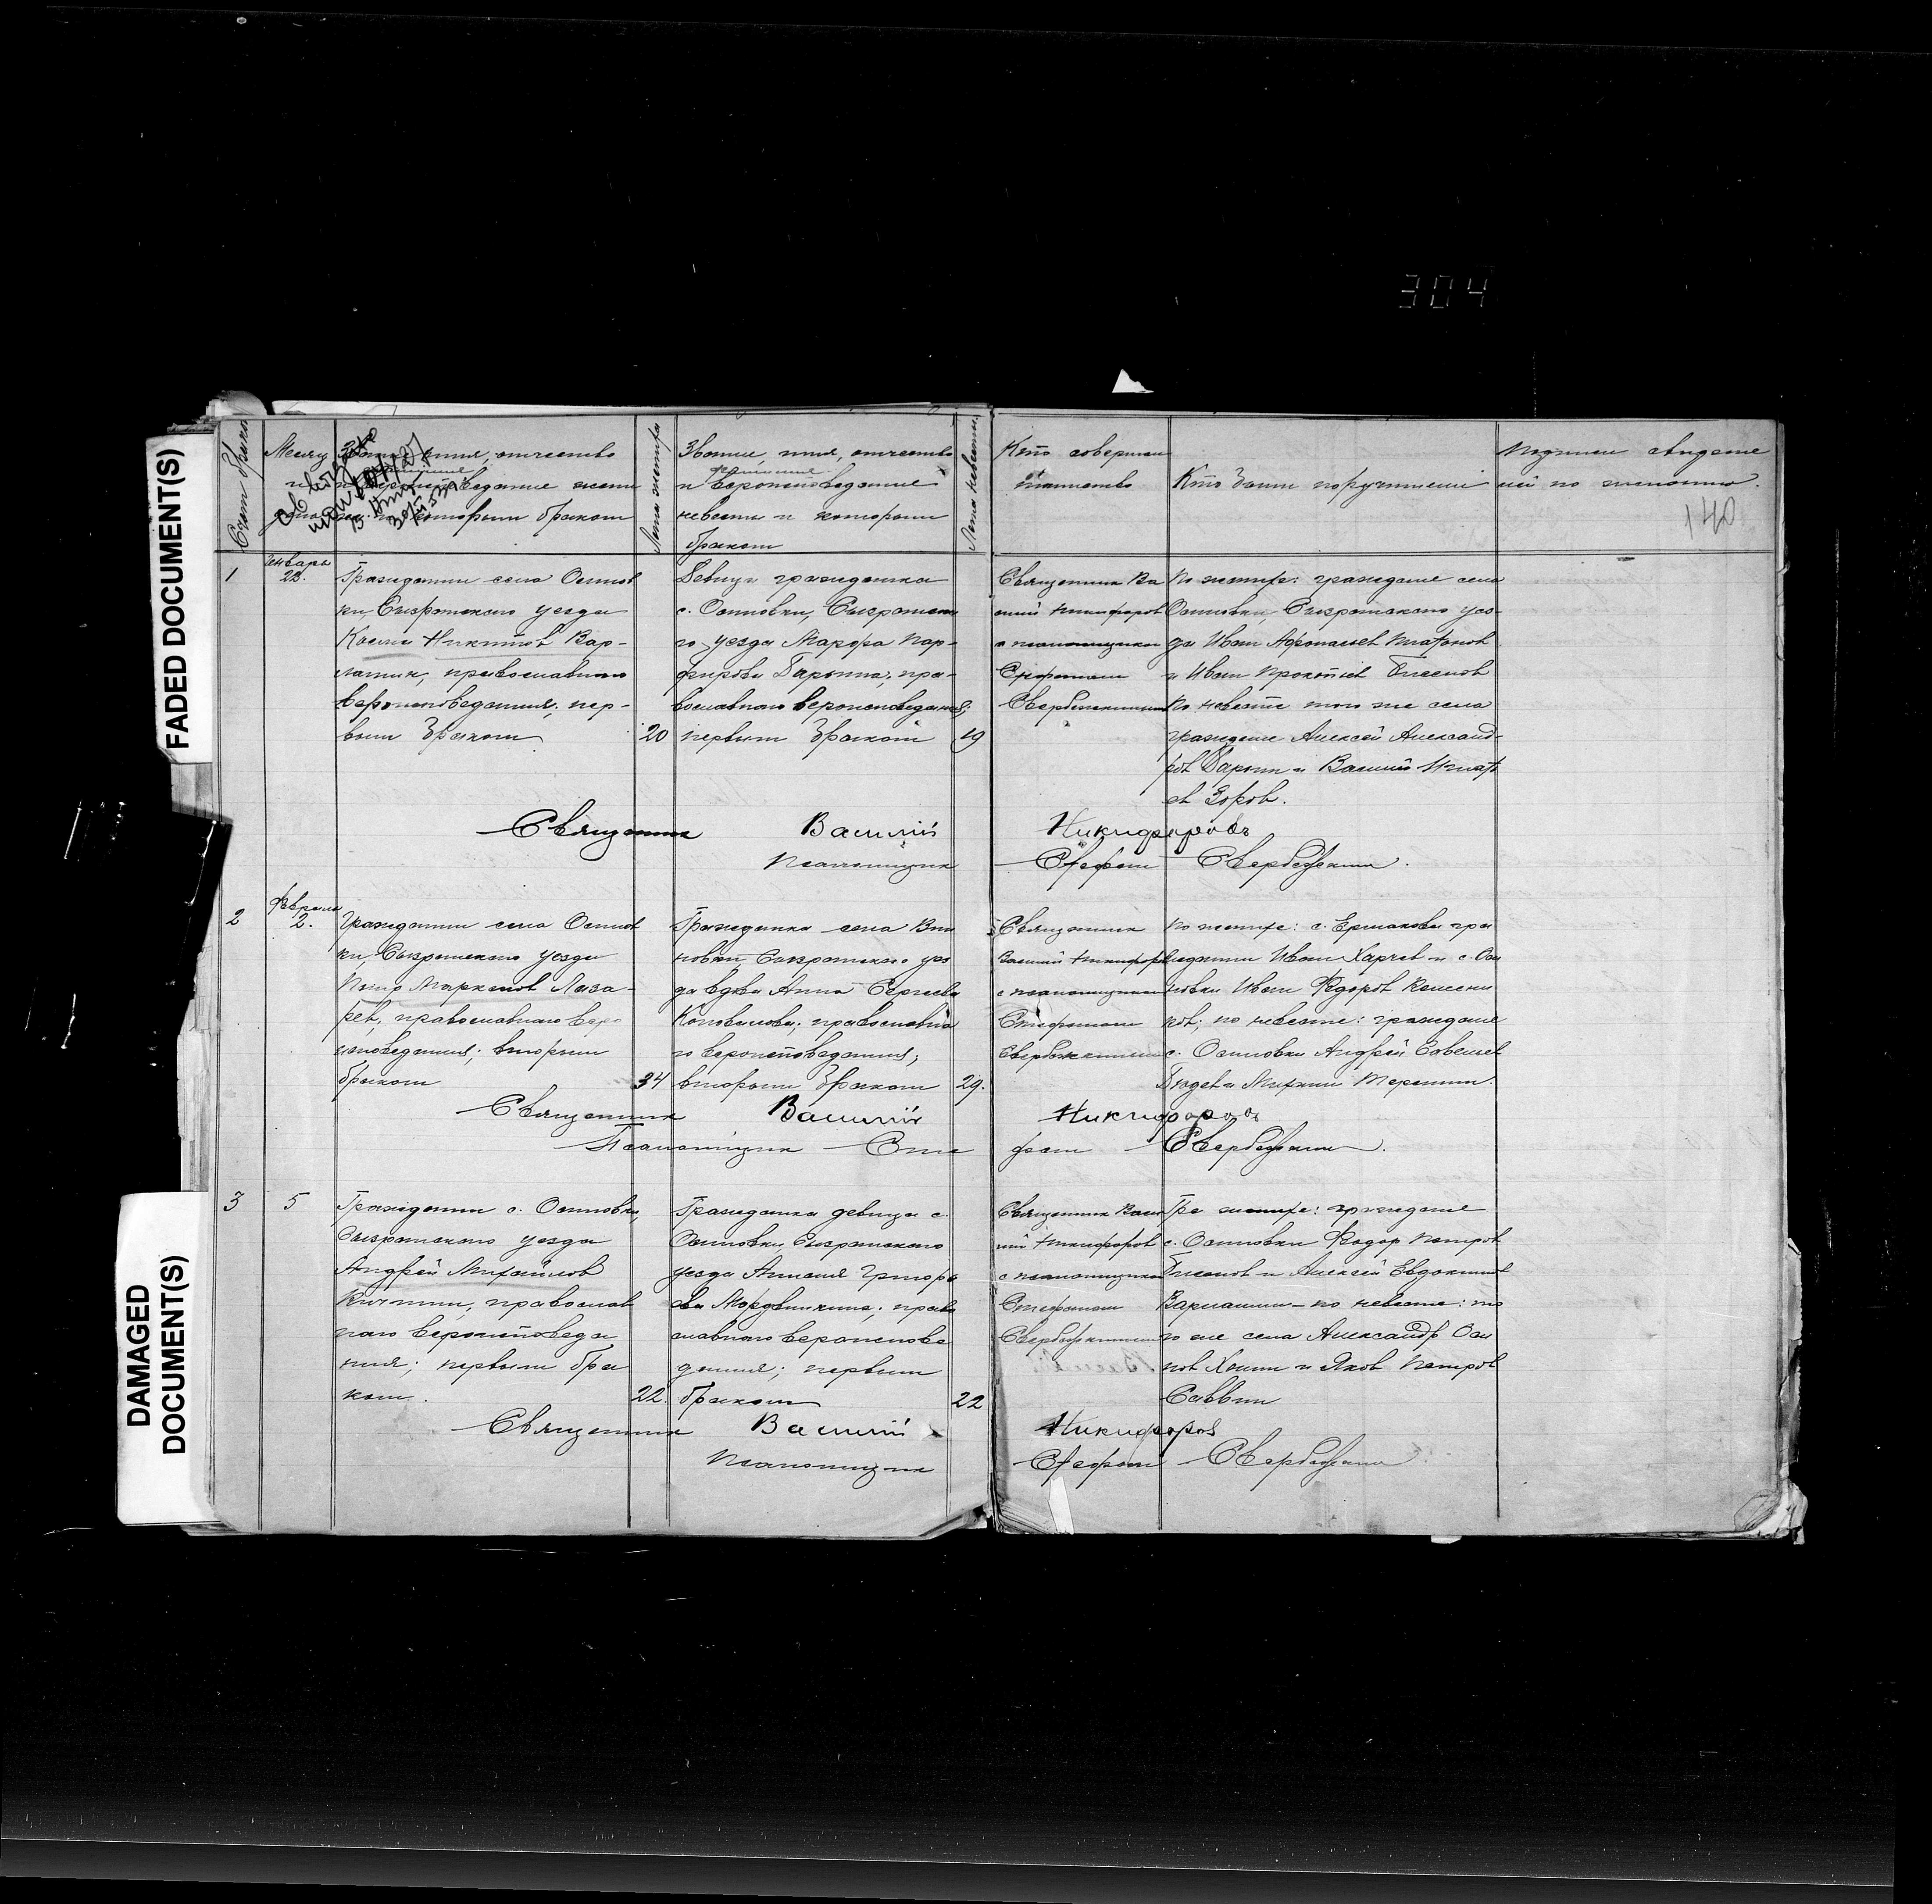 FADED DOCUMENT(S)
DAMAGED
DOCUMENT(S)
304
140
Счет браков
Месяц
Звание, имя, отчество
фамилия
и вероисповедание жени
ха и которым браком
Лета жениха
Звание, имя, отчество
фамилия
и вероисповедание
невесты и которым
браком
Лета невесты
Кто совершал
таинство
Кто были поручители
Подписи свидете
лей по желанию.
1
Январь
Гражданин села Осинов
ки Сызранского уезда
Косма Никитов Вар-
ламин, православного
вероисповедания; пер-
вым браком
20
Девица гражданка
с. Осиновки, Сызранско
го уезда Марфа Пор-
фирова Ларина, пра-
вославного вероисповедания;
первым браком
19
Священник Ва
силий Никифоров
с псаломщиком
Стефаном
По женихе: граждане села
Осиновки, Сызранского уез-
да Иван Афонасьев Платонов
и Иван
По невесте того же села
граждане Алексей Александ-
ров Ларин и Василий Игнать
ев
Священник Василий Никифоровъ
Псаломщик Стефан
2
Февраля
2.
Гражданин села Осинов
ки, Сызранского уезда
Петр Маркелов Лаза-
рев, православного веро
исповедания; вторым
браком
34
Гражданка села
Сызранского уез
да вдова Анна Сергеева
Коновалова; православно
го вероисповедания;
вторым браком
29.
Священник
Василий Никифоров
с псаломщиком
Стефаном
По женихе: с. Ермакова гра
жданин Иван Харчев и с. Оси
новки Иван Федоров
по невесте: граждане
с. Осиновки Андрей Савельев
Терешин.
Священник Василий Никифоровъ
Псаломщик Сте фан
3
5
Гражданин с. Осиновки,
Сызранского уезда
Андрей Михайлов
Кичтин, православ
ного вероисповеда
ния; первым бра
ком.
22.
Гражданка девица с.
Осиновки, Сызранского
уезда Григорь
ева Мордвинкина; право
славного вероиспове
дания; первым
браком
22
Священник Васи
лий Никифоров
с псаломщиком
Стефаном
По женихе: граждане
с. Осиновки Федор Петров
и Алексей Евдокимов
Варламин - по невесте: то
го же села Александр Оси
пов и Яков Петров
Саввин
Священник Василий Никифоров
Псаломщик Стефан